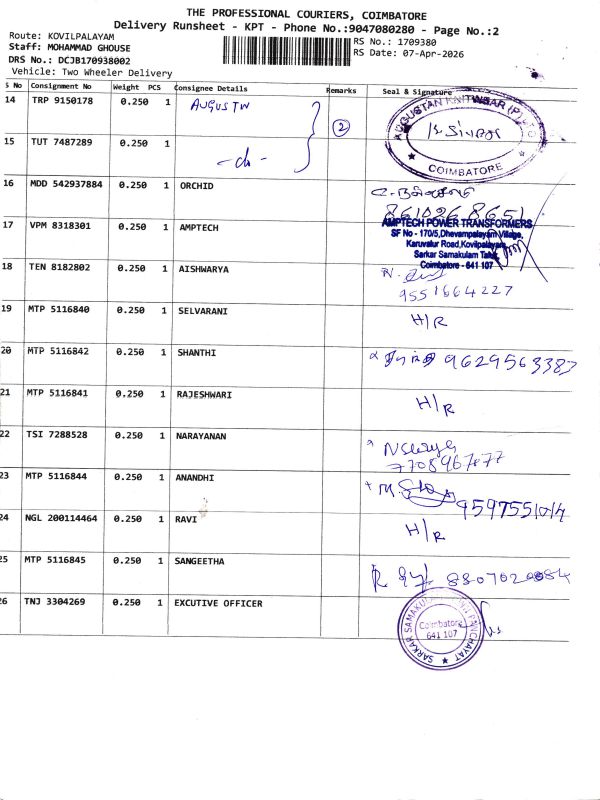 THE PROFESSIONAL COURIERS, COIMBATORE
Delivery Runsheet - KPT - Phone No.:9047080280 - Page No.:2
Route: KOVILPALAYAM
Staff: MOHAMMAD GHOUSE
DRS No.: DCJB170938002
Vehicle: Two Wheeler Delivery
RS No.: 1709380
RS Date: 07-Apr-2026
S No Consignment No Weight PCS Consignee Details Remarks Seal & Signature
14 TRP 9150178 0.250 1 AUGUSTIN
2
COIMBATORE
15 TUT 7487289 0.250 1 -do-
16 MDD 542937884 0.250 1 ORCHID
8610268651
17 VPM 8318301 0.250 1 AMPTECH
AMPTECH POWER TRANSFORMERS
SF No - 170/5,Dhevampalayam Village,
Karuvalur Road,Kovilpalayam,
Sarkar Samakulam Taluk,
Coimbatore - 641 107
18 TEN 8182802 0.250 1 AISHWARYA
9551664227
19 MTP 5116840 0.250 1 SELVARANI H/R
20 MTP 5116842 0.250 1 SHANTHI 9629563383
21 MTP 5116841 0.250 1 RAJESHWARI H/R
22 TSI 7288528 0.250 1 NARAYANAN
23 MTP 5116844 0.250 1 ANANDHI
24 NGL 200114464 0.250 1 RAVI H/R
25 MTP 5116845 0.250 1 SANGEETHA
26 TNJ 3304269 0.250 1 EXCUTIVE OFFICER
SARKAR SAMAKULAM TOWN PANCHAYAT
Coimbatore
641 107